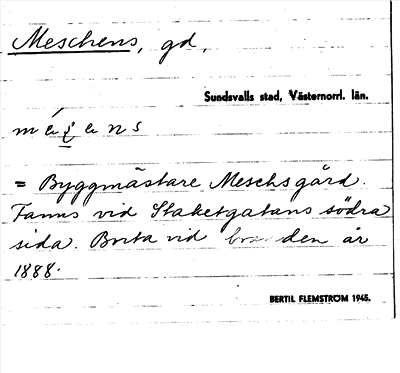 Meschens, gd,
Sundsvalls stad, Västernorrl. län.
= Byggmästare Meschs gård.
Fanns vid Staketgatans södra
sida. Borta vid branden år
1888.
BERTIL FLEMSTRÖM 1945.